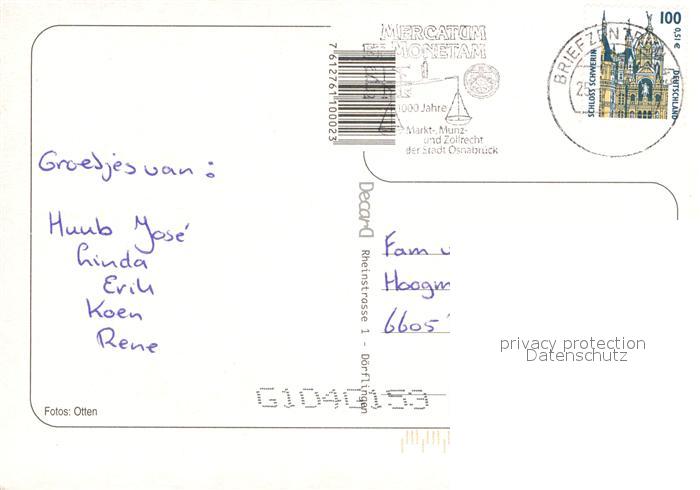 MERCATUM
ET MONETAM
1000 Jahre
Markt-, Münz-
und Zollrecht
der Stadt Osnabrück
7612761100023
100
0,51 €
SCHLOSS SCHWERIN
DEUTSCHLAND
BRIEFZENTRUM
Groetjes van:
Huub José
Linda
Erik
Koen
Rene
Decard
Rheinstrasse 1 - Dörflingen
Fam
Hoogm
6605
privacy protection
Datenschutz
G1040153
Fotos: Otten